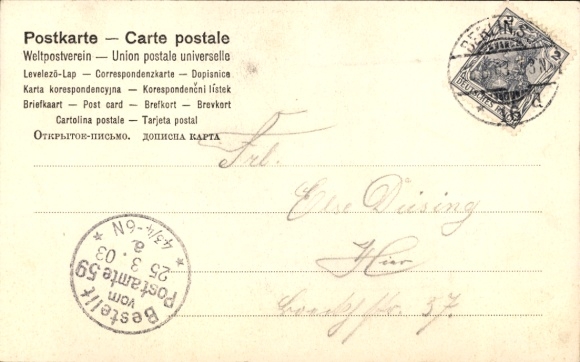 Postkarte — Carte postale
Weltpostverein — Union postale universelle
Levelező-Lap — Correspondenzkarte — Dopisnice
Karta korespondencyjna — Korespondenčni lístek
Briefkaart — Post card — Brefkort — Brevkort
Cartolina postale — Tarjeta postal
Открытое-письмо. дописна карта
BERLIN.S.
Frl.
Else Düsing
Hier
Boeckhstr. 37.
Bestellt
vom
Postamte 59
25 3. 03
a.
4 3/4-6N